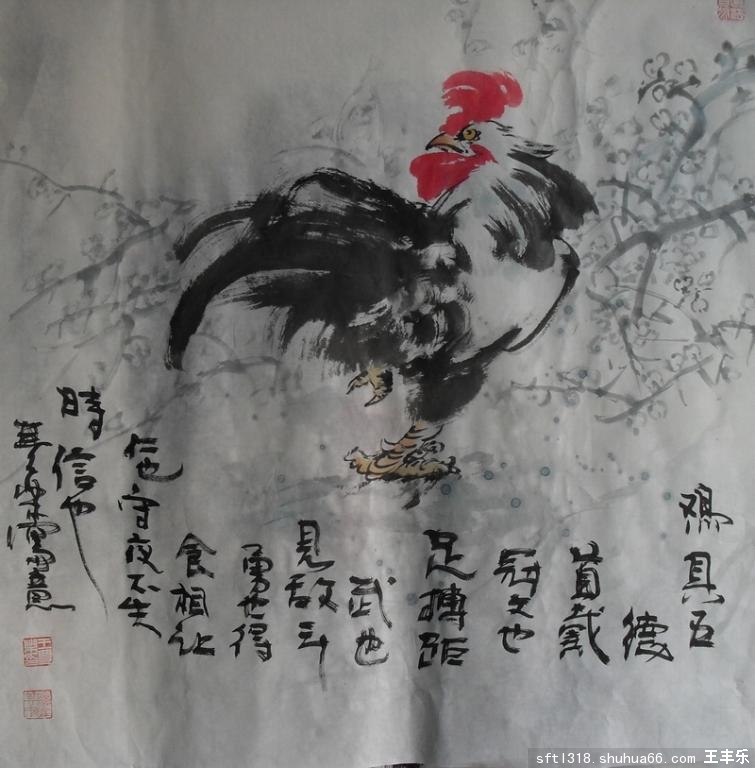 鸡具五
德
首戴
冠文也
足搏距
武也
见敌斗
勇也得
食相让
仁也守夜不失
時信也
sftl318.shuhua66.com 王丰乐